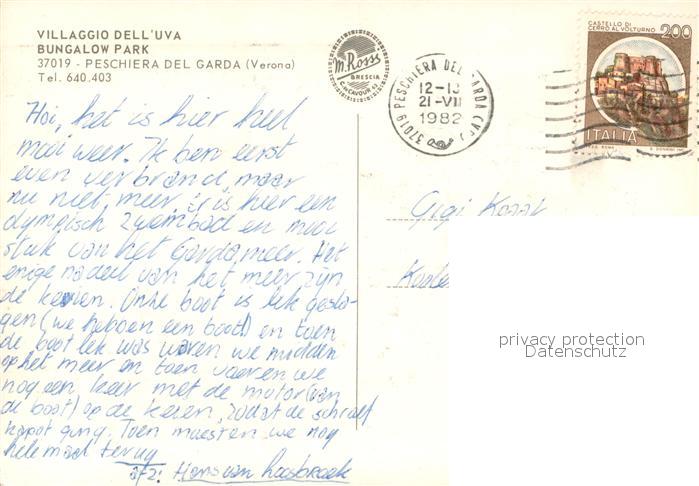 VILLAGGIO DELL'UVA
BUNGALOW PARK
37019 - PESCHIERA DEL GARDA (Verona)
Tel. 640.403
m. Rossi
BRESCIA
C. so CAVOUR 42
37019 PESCHIERA DEL GARDA (VR)
12-13
21-VII
1982
CASTELLO DI
CERRO AL VOLTURNO
200
ITALIA
Hoi, het is hier heel
mooi weer. Ik ben eerst
even verbrand, maar
nu niet meer. Er is hier een
olympisch zwembad en mooi
stuk van het Gardameer. Het
enige nadeel van het meer zijn
de keien. Onze boot is lek gesla-
gen (we hebben een boot!) en toen
de boot lek was waren we midden
op het meer en toen voeren we
nog een keer met de motor (van
de boot) op de keien, zodat de schroef
kapot ging. Toen moesten we nog
helemaal terug
afz: Hans van
Gigi
privacy protection
Datenschutz